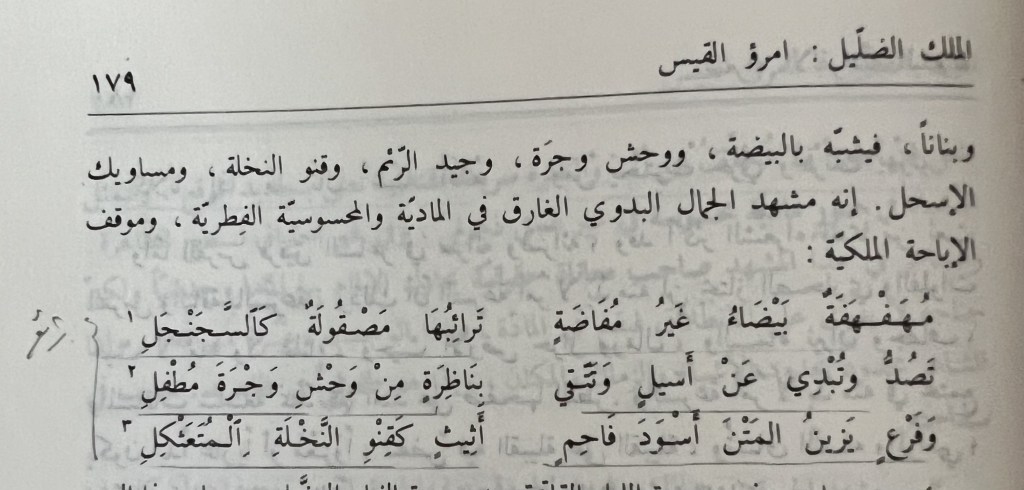 الملك الضلّيل : امرؤ القيس
١٧٩
وبناناً ، فيشبّه بالبيضة ، ووحش وجرَة ، وجيد الرّئم ، وقنو النخلة ، ومساويك
الإسحل . إنه مشهد الجمال البدوي الغارق في الماديّة والمحسوسيّة الفِطريّة ، وموقف
الإباحة الملكيّة :
مُهَفْهَفَةٌ بَيْضَاءُ غَيْرُ مُفَاضَةٍ تَرائِبُهَا مَصْقُولَةٌ كَالسَّجَنْجَلِ ١
تَصُدُّ وتُبْدِي عَنْ أَسيلٍ وَتَتَّقي بِنَاظِرَةٍ مِنْ وَحْشِ وَجْرَةَ مُطْفِلِ ٢
وَفَرْعٍ يَزينُ المَتْنَ أَسْوَدَ فَاحِمٍ أَثِيثٍ كَقِنْوِ النَّخْلَةِ اِلْمُتَعَثْكِلِ ٣